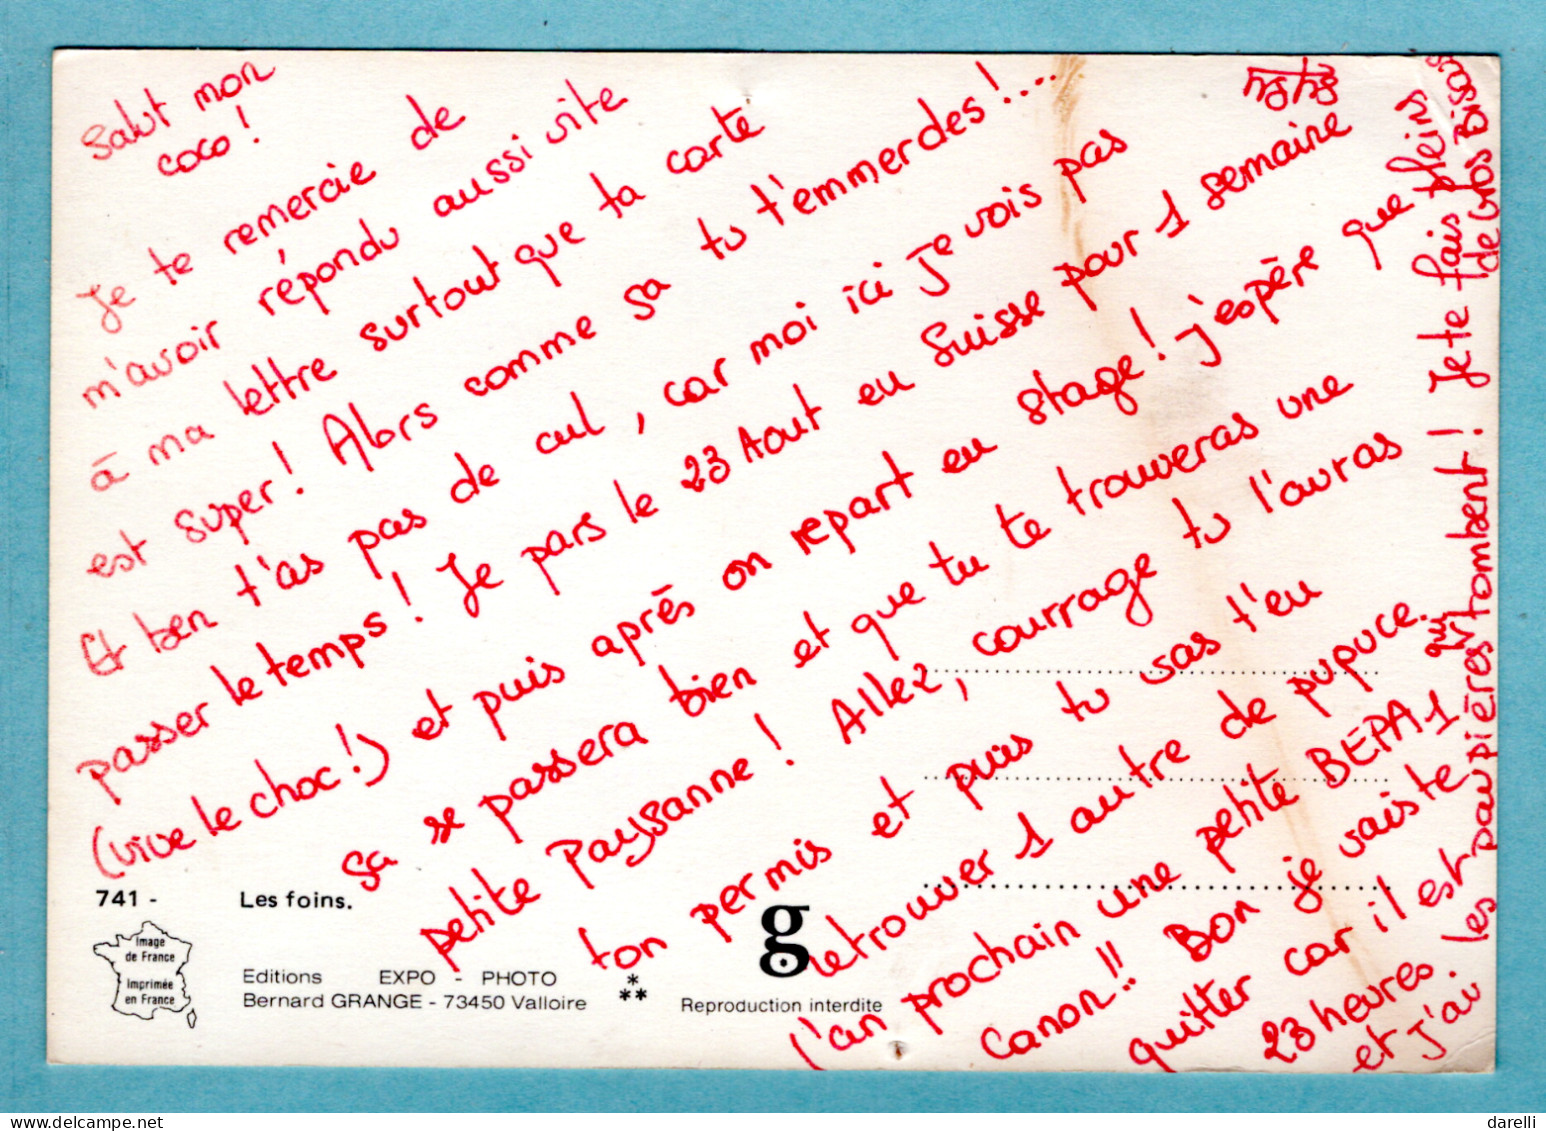 Salut mon
coco !
Je te remercie de
m'avoir répondu aussi vite
à ma lettre surtout que ta carte
est super ! Alors comme sa tu t'emmerdes !....
Et ben t'as pas de cul, car moi ici Je vois pas
passer le temps ! Je pars le 23 Aout en Suisse pour 1 semaine
(vive le choc !) et puis après on repart en stage ! j'espère que
sa se passera bien et que tu te trouveras une
petite Paysanne ! Allez, courrage tu l'auras
ton permis et puis tu vas t'en
retrouver 1 autre de pupuce.
l'an prochain une petite BEPA1
canon !! Bon je vais te
quitter car il est
23 heures.
et J'ai
les paupières qui tombent ! Je te fais pleins
de Gros Bisous
741 -
Les foins.
Image
de France
Imprimée
en France
Editions EXPO - PHOTO
Bernard GRANGE - 73450 Valloire
*
**
g
Reproduction interdite
delcampe.net
darelli